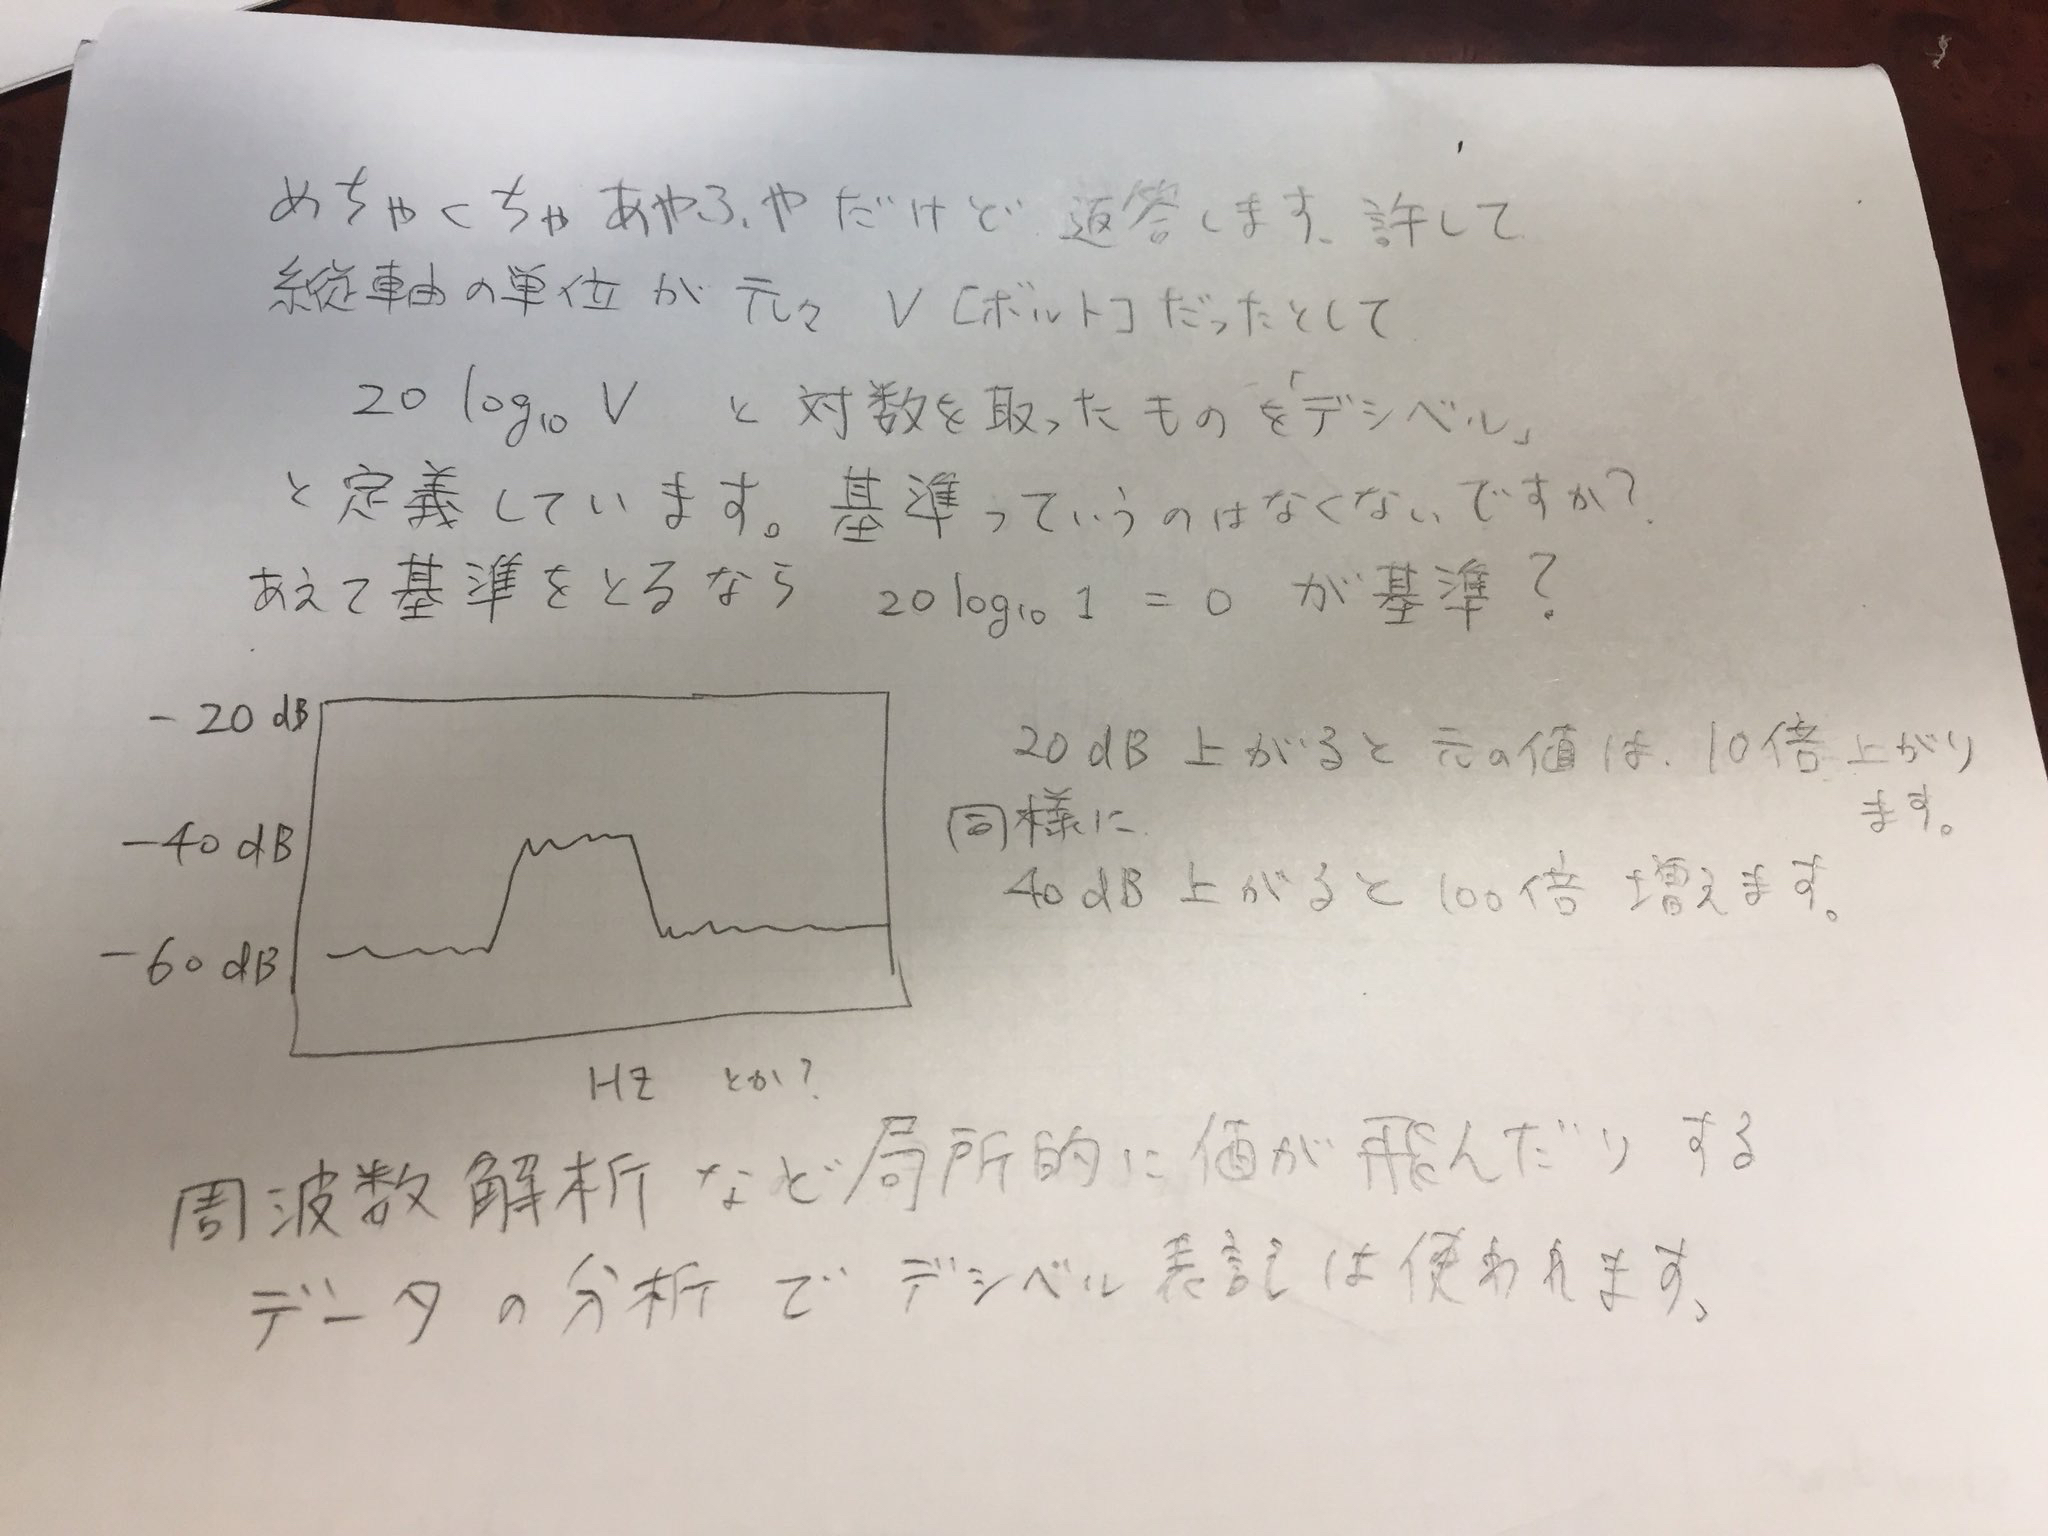 めちゃくちゃあやふやだけど返答します、許して
縦軸の単位が元々 V [ボルト] だったとして
20 log₁₀ V と対数を取ったものを「デシベル」
と定義しています。基準っていうのはなくないですか?
あえて基準をとるなら 20 log₁₀ 1 = 0 が基準?
-20 dB
-40 dB
-60 dB
Hz とか?
20 dB 上がると元の値は 10倍上がり
ます。
同様に
40 dB 上がると 100倍増えます。
周波数解析など局所的に値が飛んだりする
データの分析でデシベル表記は使われます、